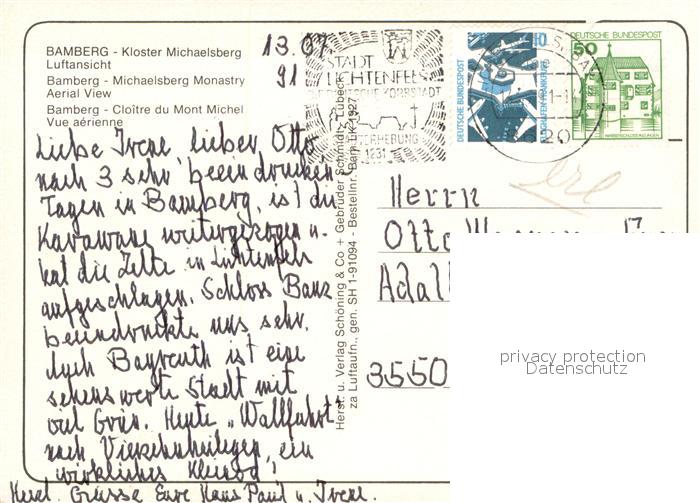 BAMBERG - Kloster Michaelsberg
Luftansicht
Bamberg - Michaelsberg Monastry
Aerial View
Bamberg - Cloître du Mont Michel
Vue aérienne
13.07.
91
Liebe Irene, lieber Otto
nach 3 sehr beeindrucken
Tagen in Bamberg, ist die
Karawane weitergezogen u.
hat die Zelte in Lichtenfels
aufgeschlagen. Schloss Banz
beeindruckte uns sehr.
Auch Bayreuth ist eine
sehenswerte Stadt mit
viel Grün. Heute „Wallfahrt"
nach Vierzehnheiligen, ein
wirkliches Kleinod!
Herzl. Grüsse Eure Hans Paul u. Irene.
Herst. u. Verlag Schöning & Co + Gebrüder Schmidt, Lübeck
za Luftaufn., gen. SH 1-91094 - Bestellnr. Bam LK 1927
STADT
LICHTENFELS
DEUTSCHE KORBSTADT
STADTERHEBUNG
1231
10
DEUTSCHE BUNDESPOST
FLUGHAFEN FRANKFURT
DEUTSCHE BUNDESPOST
50
WASSERSCHLOSS INZLINGEN
Herrn
Otto
Adal
3550
privacy protection
Datenschutz